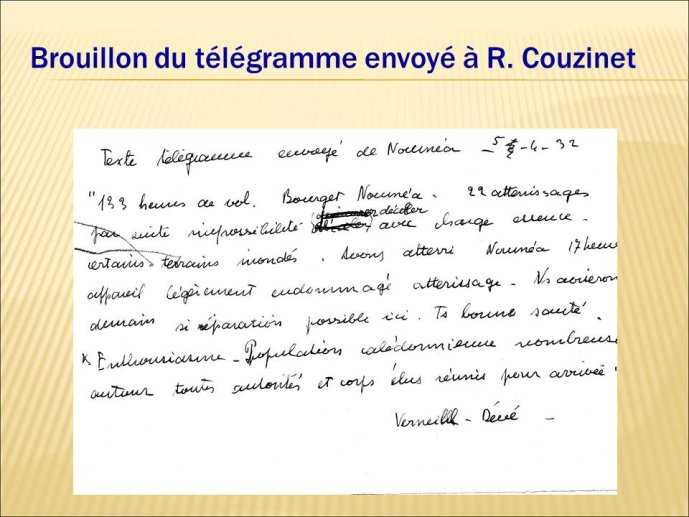 Brouillon du télégramme envoyé à R. Couzinet
Texte télégramme envoyé de Nouméa - 5-4-32
"133 heures de vol. Bourget Nouméa. 22 atterissages
par suite impossibilité décoller avec charge essence.
certains terrains inondés. Avons atterri Nouméa 17 heure
appareil légèrement endommagé atterissage. Ns aviseron
demain si réparation possible ici. Ts bonne santé.
Enthousiasme - Population calédonienne nombreuse
autour toutes autorités et corps élus réunis pour arrivée"
Verneilh - Dévé -